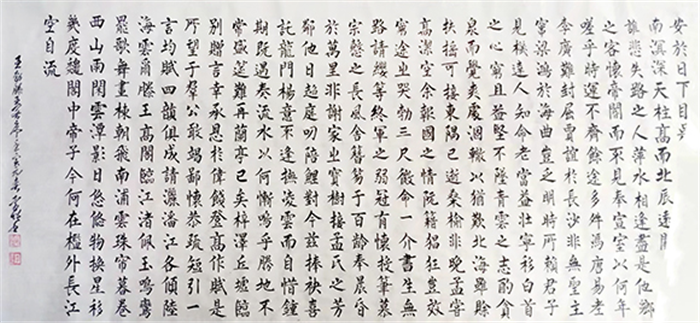 安於日下目吳
南溟深天柱高而北辰遠關
誰悲失路之人萍水相逢盡是他鄉
之客懷帝閽而不見奉宣室以何年
嗟乎時運不齊命途多舛馮唐易老
李廣難封屈賈誼於長沙非無聖主
竄梁鴻於海曲豈乏明時所賴君子
見機達人知命老當益壯寧移白首
之心窮且益堅不墜青雲之志酌貪
泉而覺爽處涸轍以猶歡北海雖賒
扶搖可接東隅已逝桑榆非晚孟嘗
高潔空餘報國之情阮籍猖狂豈效
窮途之哭勃三尺微命一介書生無
路請纓等終軍之弱冠有懷投筆慕
宗愨之長風舍簪笏於百齡奉晨昏
於萬里非謝家之寶樹接孟氏之芳
鄰他日趨庭叨陪鯉對今茲捧袂喜
託龍門楊意不逢撫凌雲而自惜鍾
期既遇奏流水以何慚嗚乎勝地不
常盛筵難再蘭亭已矣梓澤丘墟臨
別贈言幸承恩於偉餞登高作賦是
所望於群公敢竭鄙懷恭疏短引一
言均賦四韻俱成請灑潘江各傾陸
海雲爾滕王高閣臨江渚佩玉鳴鸞
罷歌舞畫棟朝飛南浦雲珠簾暮卷
西山雨閑雲潭影日悠悠物換星移
幾度秋閣中帝子今何在檻外長江
空自流